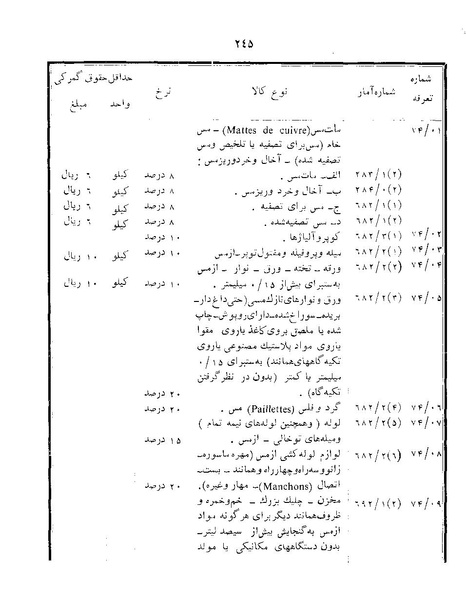 ۲۴۵
شماره تعرفه شماره آمار نوع کالا نرخ حداقل حقوق گمرکی واحد مبلغ
۷۴/۰۱ مات‌مس (Mattes de cuivre) ـ مس
خام (مس برای تصفیه یا تلخیص و مس
تصفیه شده) ـ آخال و خرده‌وریز مس:
۲۸۳/۱(۲) الف ـ مات‌مس . ۸ درصد کیلو ۶ ریال
۲۸۴/۰(۲) ب ـ آخال وخرد وریزمس . ۸ درصد کیلو ۶ ریال
۶۸۲/۱(۱) ج ـ مس برای تصفیه . ۸ درصد کیلو ۶ ریال
۶۸۲/۱(۲) د ـ مس تصفیه‌شده . ۸ درصد کیلو ۶ ریال
۷۴/۰۲ ۶۸۲/۳(۱) کوپروآلیاژها . ۱۰ درصد
۷۴/۰۳ ۶۸۲/۲(۱) میله وپروفیله ومفتول توپر ـ ازمس
۷۴/۰۴ ۶۸۲/۲(۲) ورقه ـ تخته ـ ورق ـ نوار ـ ازمس کیلو ۱۰ ریال
به‌ستبرای بیش‌از ۰/۱۵ میلیمتر . ۱۰ درصد کیلو ۱۰ ریال
۷۴/۰۵ ۶۸۲/۲(۳) ورق و نوارهای نازک‌مسی (حتی داغ‌دار ـ
بریده ـ سوراخ‌شده ـ دارای روپوش ـ چاپ
شده یا ملصق برروی کاغذ یاروی مقوا
یاروی مواد پلاستیک مصنوعی یاروی
تکیه‌گاههای‌همانند) به‌ستبرای ۰/۱۵
میلیمتر یا کمتر (بدون در نظر گرفتن
تکیه‌گاه) . ۲۰ درصد
۷۴/۰۶ ۶۸۲/۲(۴) گرد و فلس (Paillettes) مس . ۲۰ درصد
۷۴/۰۷ ۶۸۲/۲(۵) لوله (وهمچنین لوله‌های نیمه تمام )
ومیله‌های توخالی ـ ازمس . ۱۵ درصد
۷۴/۰۸ ۶۸۲/۲(۶) لوازم لوله‌کشی ازمس (مهره ماسوره ـ
زانو وسه‌راه وچهارراه وهمانند ـ بست ـ
اتصال (Manchons) ـ مهار وغیره). ۲۰ درصد
۷۴/۰۹ ۶۹۲/۱(۲) مخزن ـ چلیک بزرگ ـ خم‌وخمره و
ظروف‌همانند دیگر برای هرگونه مواد
ازمس به‌گنجایش بیش از سیصد لیتر ـ
بدون دستگاههای مکانیکی یا مولد